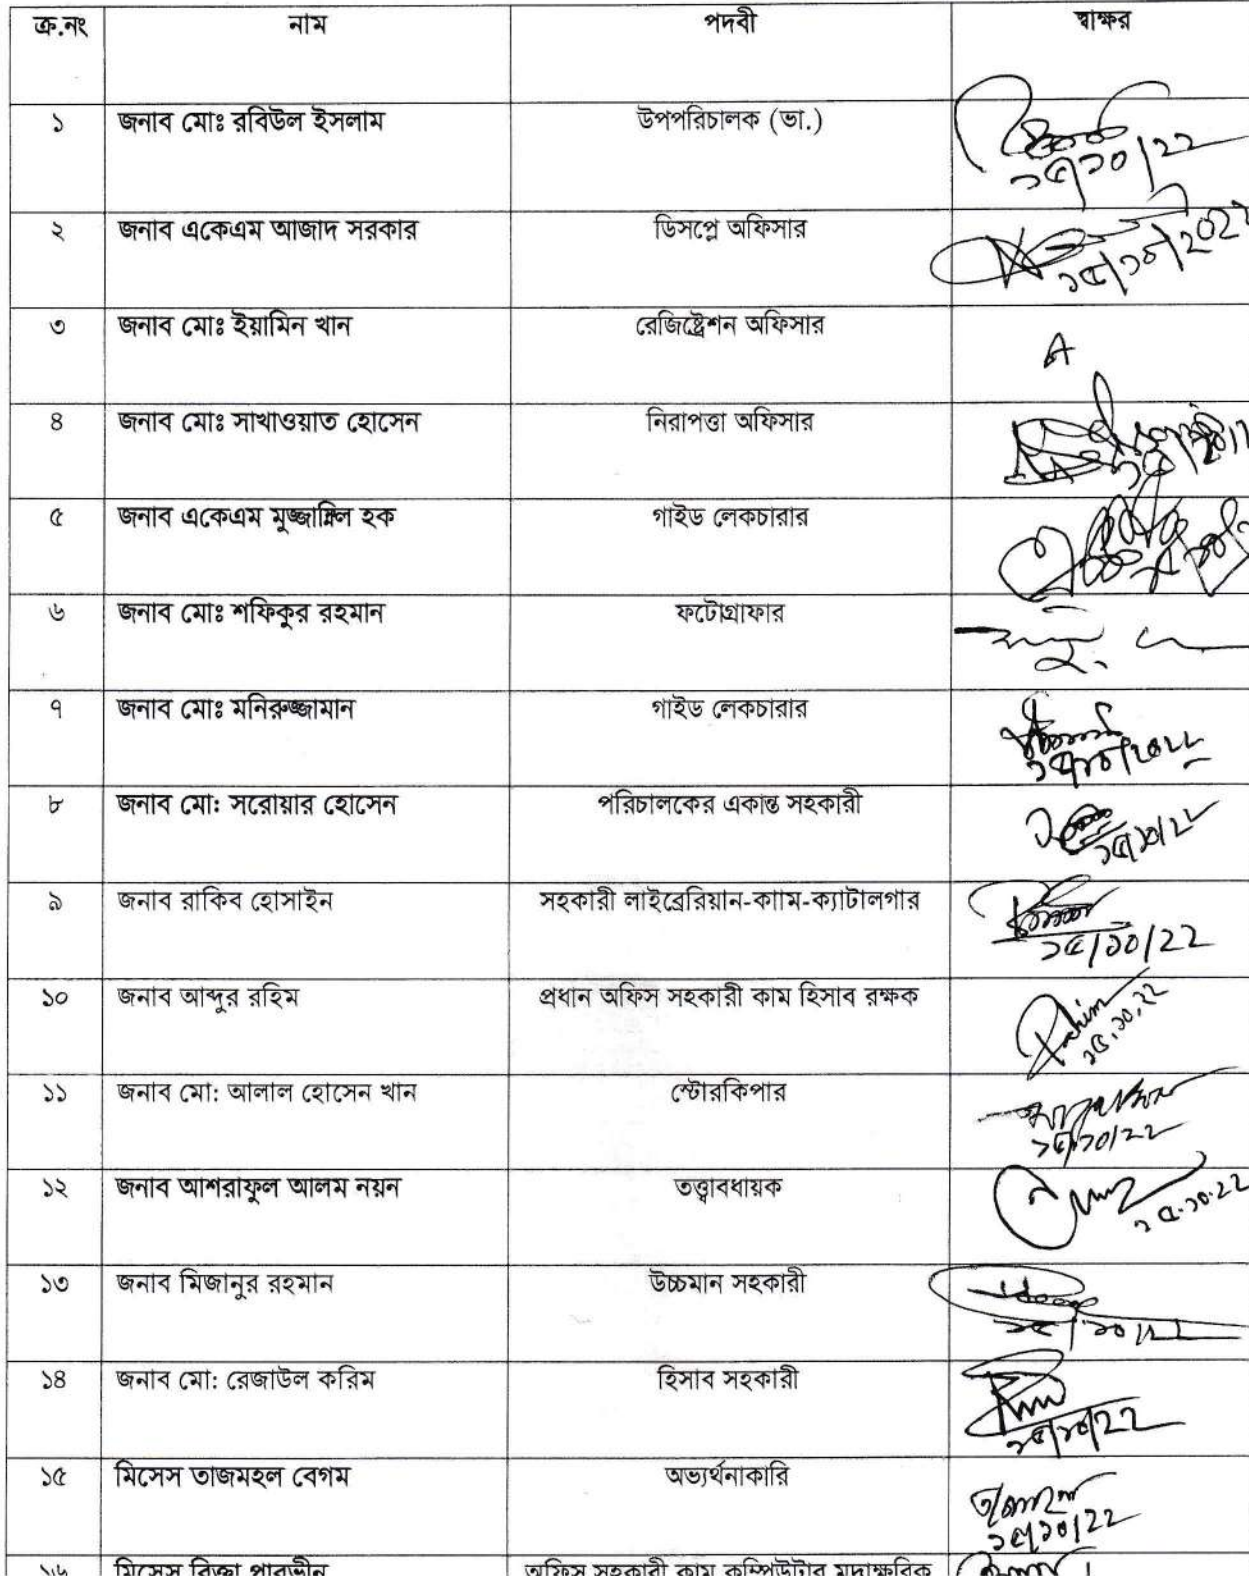 ক্র.নং নাম পদবী স্বাক্ষর
১ জনাব মোঃ রবিউল ইসলাম উপপরিচালক (ভা.)
২৫/১০/22
২ জনাব একেএম আজাদ সরকার ডিসপ্লে অফিসার
২৫/১০/202
৩ জনাব মোঃ ইয়ামিন খান রেজিষ্ট্রেশন অফিসার
A
৪ জনাব মোঃ সাখাওয়াত হোসেন নিরাপত্তা অফিসার
৫ জনাব একেএম মুজ্জাম্মিল হক গাইড লেকচারার
৬ জনাব মোঃ শফিকুর রহমান ফটোগ্রাফার
৭ জনাব মোঃ মনিরুজ্জামান গাইড লেকচারার
৮ জনাব মো: সরোয়ার হোসেন পরিচালকের একান্ত সহকারী
২৫/১০/২২
৯ জনাব রাকিব হোসাইন সহকারী লাইব্রেরিয়ান-কাাম-ক্যাটালগার
২৫/১০/22
১০ জনাব আব্দুর রহিম প্রধান অফিস সহকারী কাম হিসাব রক্ষক
Rahim
২৫.১০.২২
১১ জনাব মো: আলাল হোসেন খান স্টোরকিপার
২৫/১০/২২
১২ জনাব আশরাফুল আলম নয়ন তত্ত্বাবধায়ক
২৫.১০.22
১৩ জনাব মিজানুর রহমান উচ্চমান সহকারী
১৪ জনাব মো: রেজাউল করিম হিসাব সহকারী
২৫/১০/22
১৫ মিসেস তাজমহল বেগম অভ্যর্থনাকারি
২৫/১০/22
১৬ মিসেস রিক্তা পারভীন অফিস সহকারী কাম কম্পিউটার মুদ্রাক্ষরিক